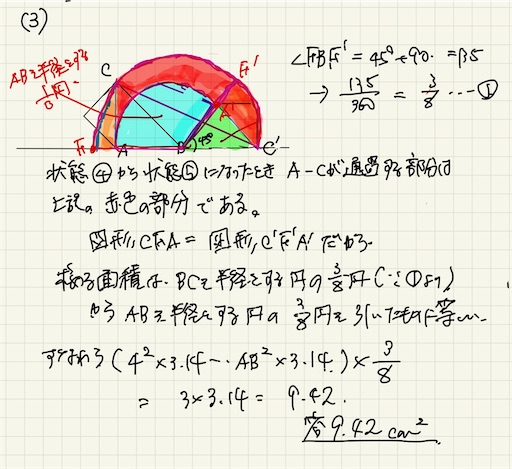 (3)
∠FBF' = 45° + 90. = 135
→ 135/360 = 3/8 ---- ①
ABを半径とする
1/8円
C F' A' F A B 45° C'
状態④から状態⑤になったとき A-Cが通過する部分は
上記の赤色の部分である。
図形CFA = 図形C'F'A' だから
求める面積は、BCを半径とする円の 3/8円 (∵①より)
から ABを半径とする円の 3/8円を引いたものに等しい.
すなわち (4² × 3.14 - AB² × 3.14) × 3/8
= 3 × 3.14 = 9.42.
答 9.42 cm²